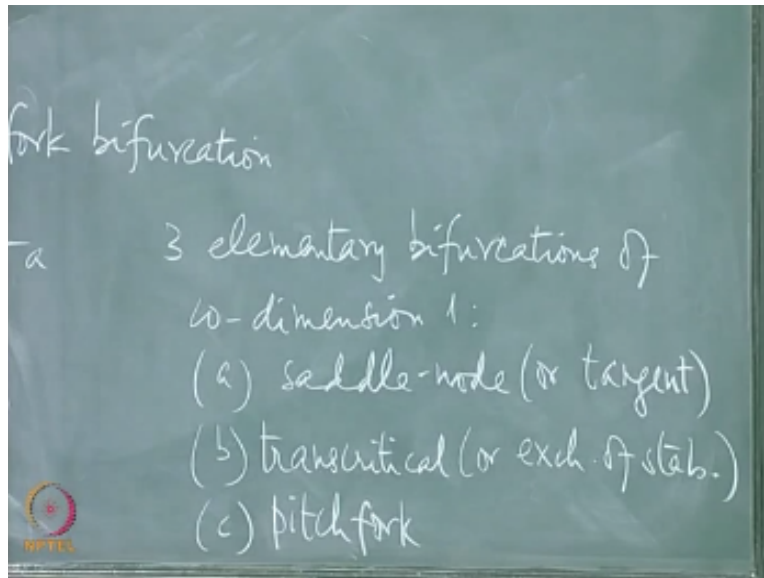 fork bifurcation
-a
3 elementary bifurcations of
co-dimension 1:
(a) saddle-node (or tangent)
(b) transcritical (or exch. of stab.)
(c) pitchfork
NPTEL